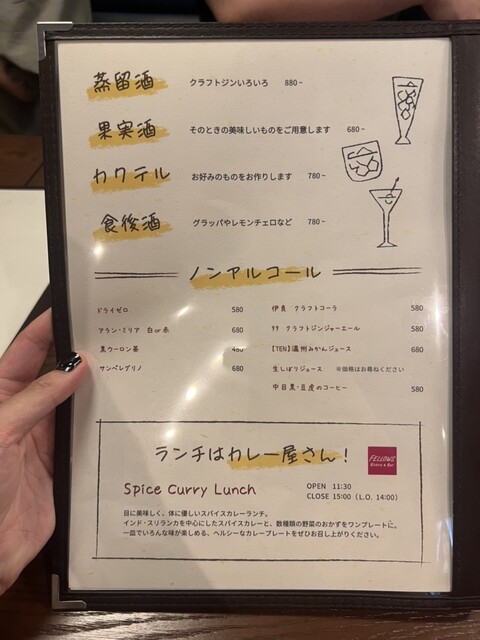 蒸留酒 クラフトジンいろいろ 880~
果実酒 そのときの美味しいものをご用意します 680~
カクテル お好みのものをお作りします 780~
食後酒 グラッパやレモンチェロなど 780~
ノンアルコール
ドライゼロ 580
アラン・ミリア 白or赤 680
黒ウーロン茶 480
サンペレグリノ 680
伊良 クラフトコーラ 580
クラフトジンジャーエール 580
【TEN】温州みかんジュース 680
生しぼりジュース ※価格はお尋ねください
中目黒・豆虎のコーヒー 580
ランチはカレー屋さん!
FELLOWS
Spice Curry Lunch
OPEN 11:30
CLOSE 15:00 (L.O. 14:00)
目に美味しく、体に優しいスパイスカレーランチ。
インド・スリランカを中心にしたスパイスカレーと、数種類の野菜のおかずをワンプレートに。
一皿でいろんな味が楽しめる、ヘルシーなカレープレートをぜひお召し上がりください。